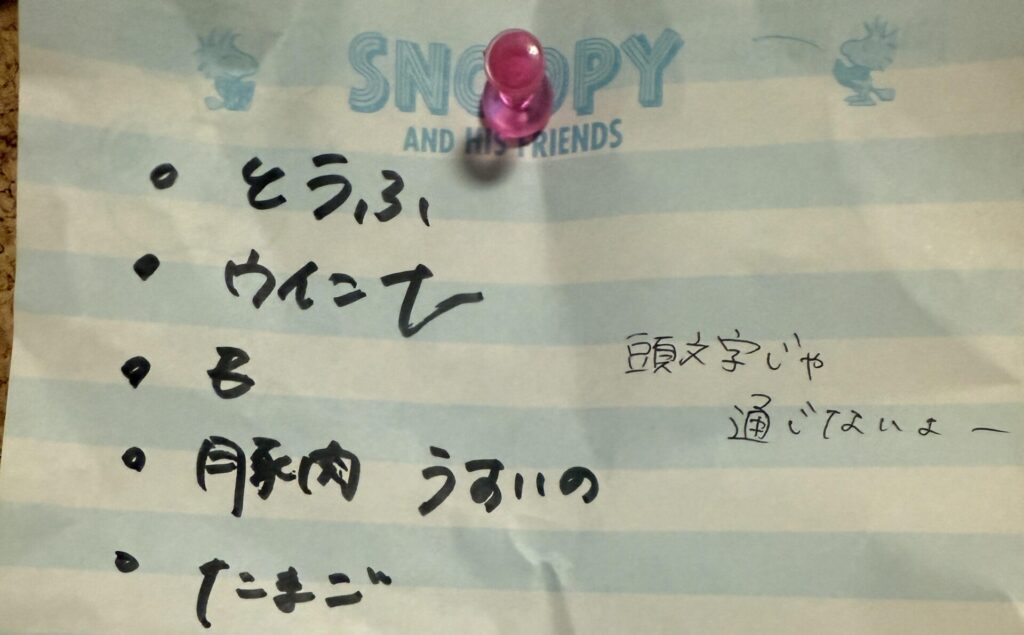 SNOOPY
AND HIS FRIENDS
・とうふ
・ウインナー
・B
・豚肉 うすいの
・たまご
頭文字じゃ
通じないよー